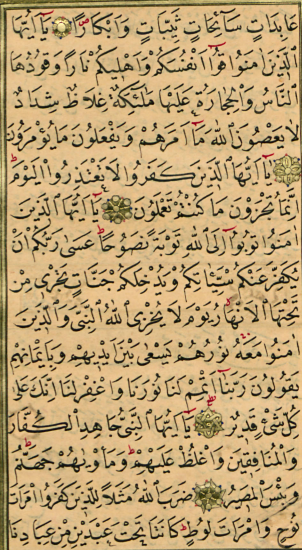 عَابِدَاتٍ سَآئِحَاتٍ ثَيِّبَاتٍ وَاَبْكَارًا يَآ اَيُّهَا
الَّذِينَ اٰمَنُوا قُوٓا اَنْفُسَكُمْ وَاَهْلِيكُمْ نَارًا وَقُودُهَا
النَّاسُ وَالْحِجَارَةُ عَلَيْهَا مَلٰٓئِكَةٌ غِلَاظٌ شِدَادٌ
لَا يَعْصُونَ اللّٰهَ مَآ اَمَرَهُمْ وَيَفْعَلُونَ مَا يُؤْمَرُونَ
يَآ اَيُّهَا الَّذِينَ كَفَرُوا لَا تَعْتَذِرُوا الْيَوْمَ
اِنَّمَا تُجْزَوْنَ مَا كُنْتُمْ تَعْمَلُونَ يَآ اَيُّهَا الَّذِينَ
اٰمَنُوا تُوبُوٓا اِلَى اللّٰهِ تَوْبَةً نَصُوحًا عَسٰى رَبُّكُمْ اَنْ
يُكَفِّرَ عَنْكُمْ سَيِّئَاتِكُمْ وَيُدْخِلَكُمْ جَنَّاتٍ تَجْرِى مِنْ
تَحْتِهَا الْاَنْهَارُ يَوْمَ لَا يُخْزِى اللّٰهُ النَّبِىَّ وَالَّذِينَ
اٰمَنُوا مَعَهُ نُورُهُمْ يَسْعٰى بَيْنَ اَيْدِيهِمْ وَبِاَيْمَانِهِمْ
يَقُولُونَ رَبَّنَآ اَتْمِمْ لَنَا نُورَنَا وَاغْفِرْ لَنَا اِنَّكَ عَلٰى
كُلِّ شَىْءٍ قَدِيرٌ يَآ اَيُّهَا النَّبِىُّ جَاهِدِ الْكُفَّارَ
وَالْمُنَافِقِينَ وَاغْلُظْ عَلَيْهِمْ وَمَاْوٰيهُمْ جَهَنَّمُ
وَبِئْسَ الْمَصِيرُ ضَرَبَ اللّٰهُ مَثَلًا لِلَّذِينَ كَفَرُوا امْرَاَتَ
نُوحٍ وَامْرَاَتَ لُوطٍ كَانَتَا تَحْتَ عَبْدَيْنِ مِنْ عِبَادِنَا